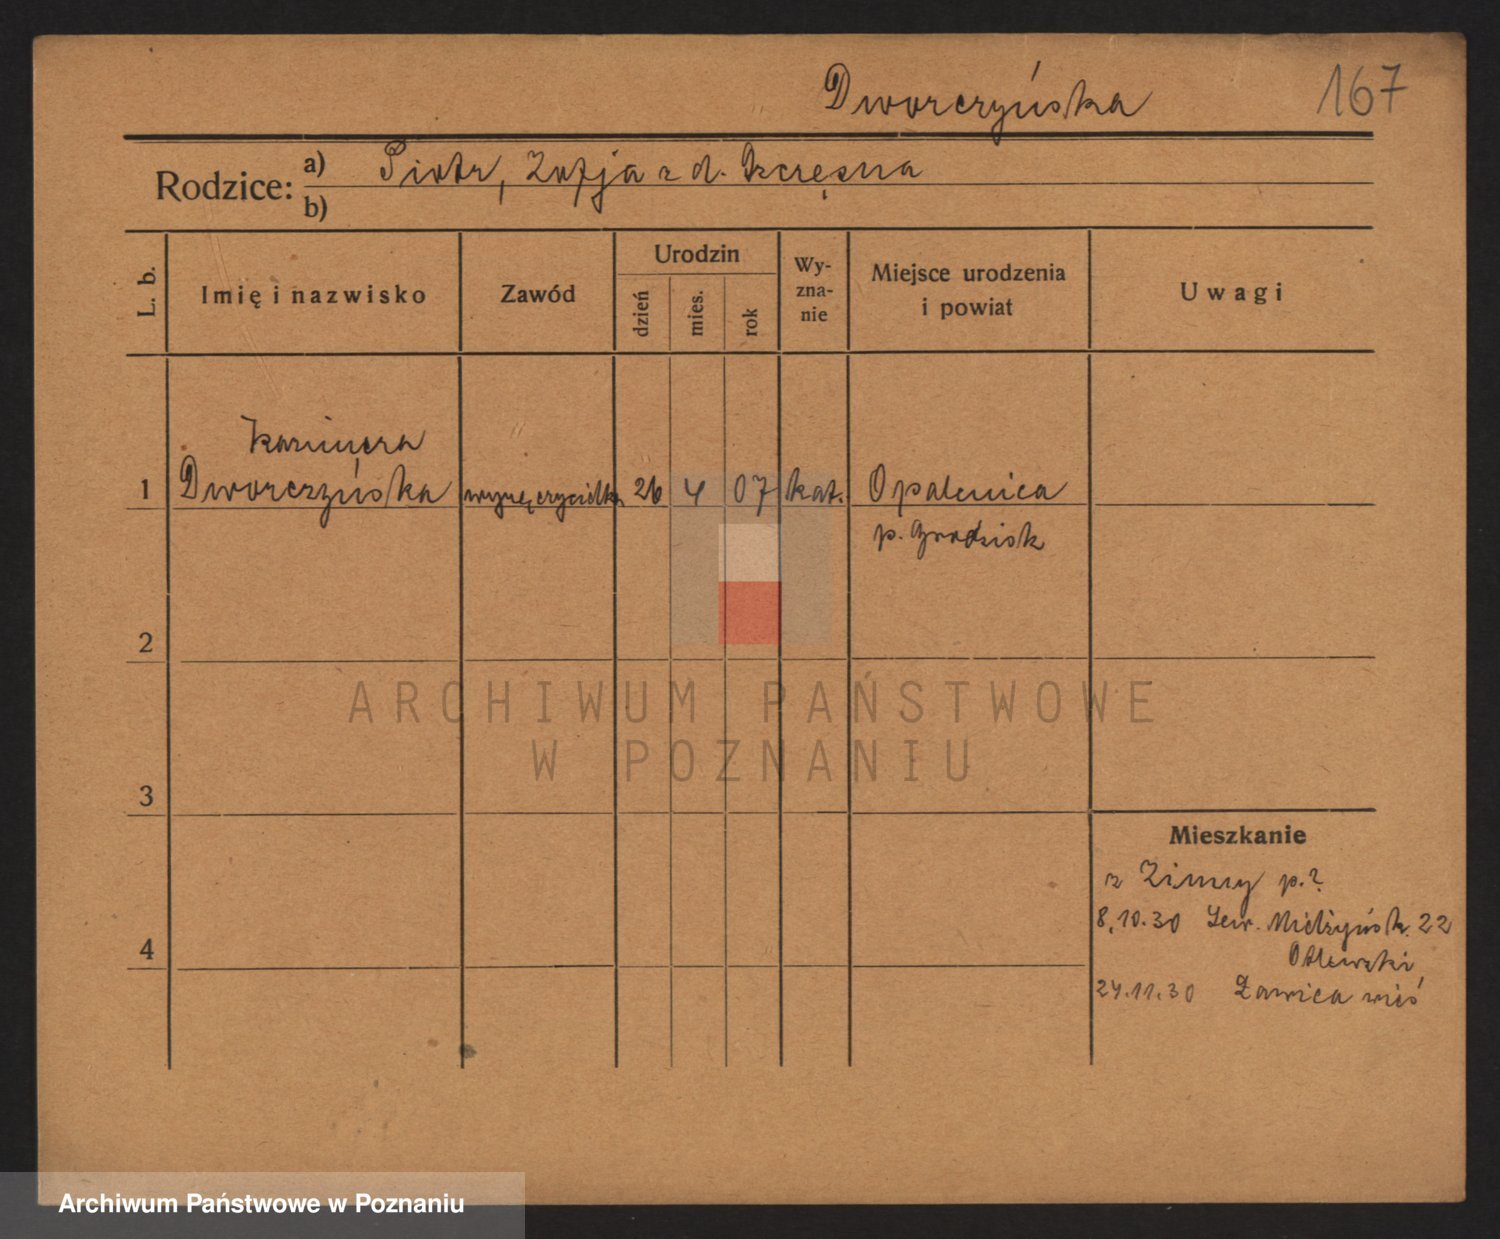 Dworczyńska 167
Rodzice: a) Piotr, Zofja z d. Szczęsna
b)
L. b.
Imię i nazwisko
Zawód
Urodzin
dzień
mies.
rok
Wy-
zna-
nie
Miejsce urodzenia
i powiat
Uwagi
Kazimiera
1 Dworczyńska 26 4 07 kat. Opalenica
p. Grodzisk
2
3
4
Mieszkanie
z Zimny p.?
8.10.30 Sew. Mielżyńsk. 22
24.11.30 Ławica wieś
ARCHIWUM PAŃSTWOWE
W POZNANIU
Archiwum Państwowe w Poznaniu